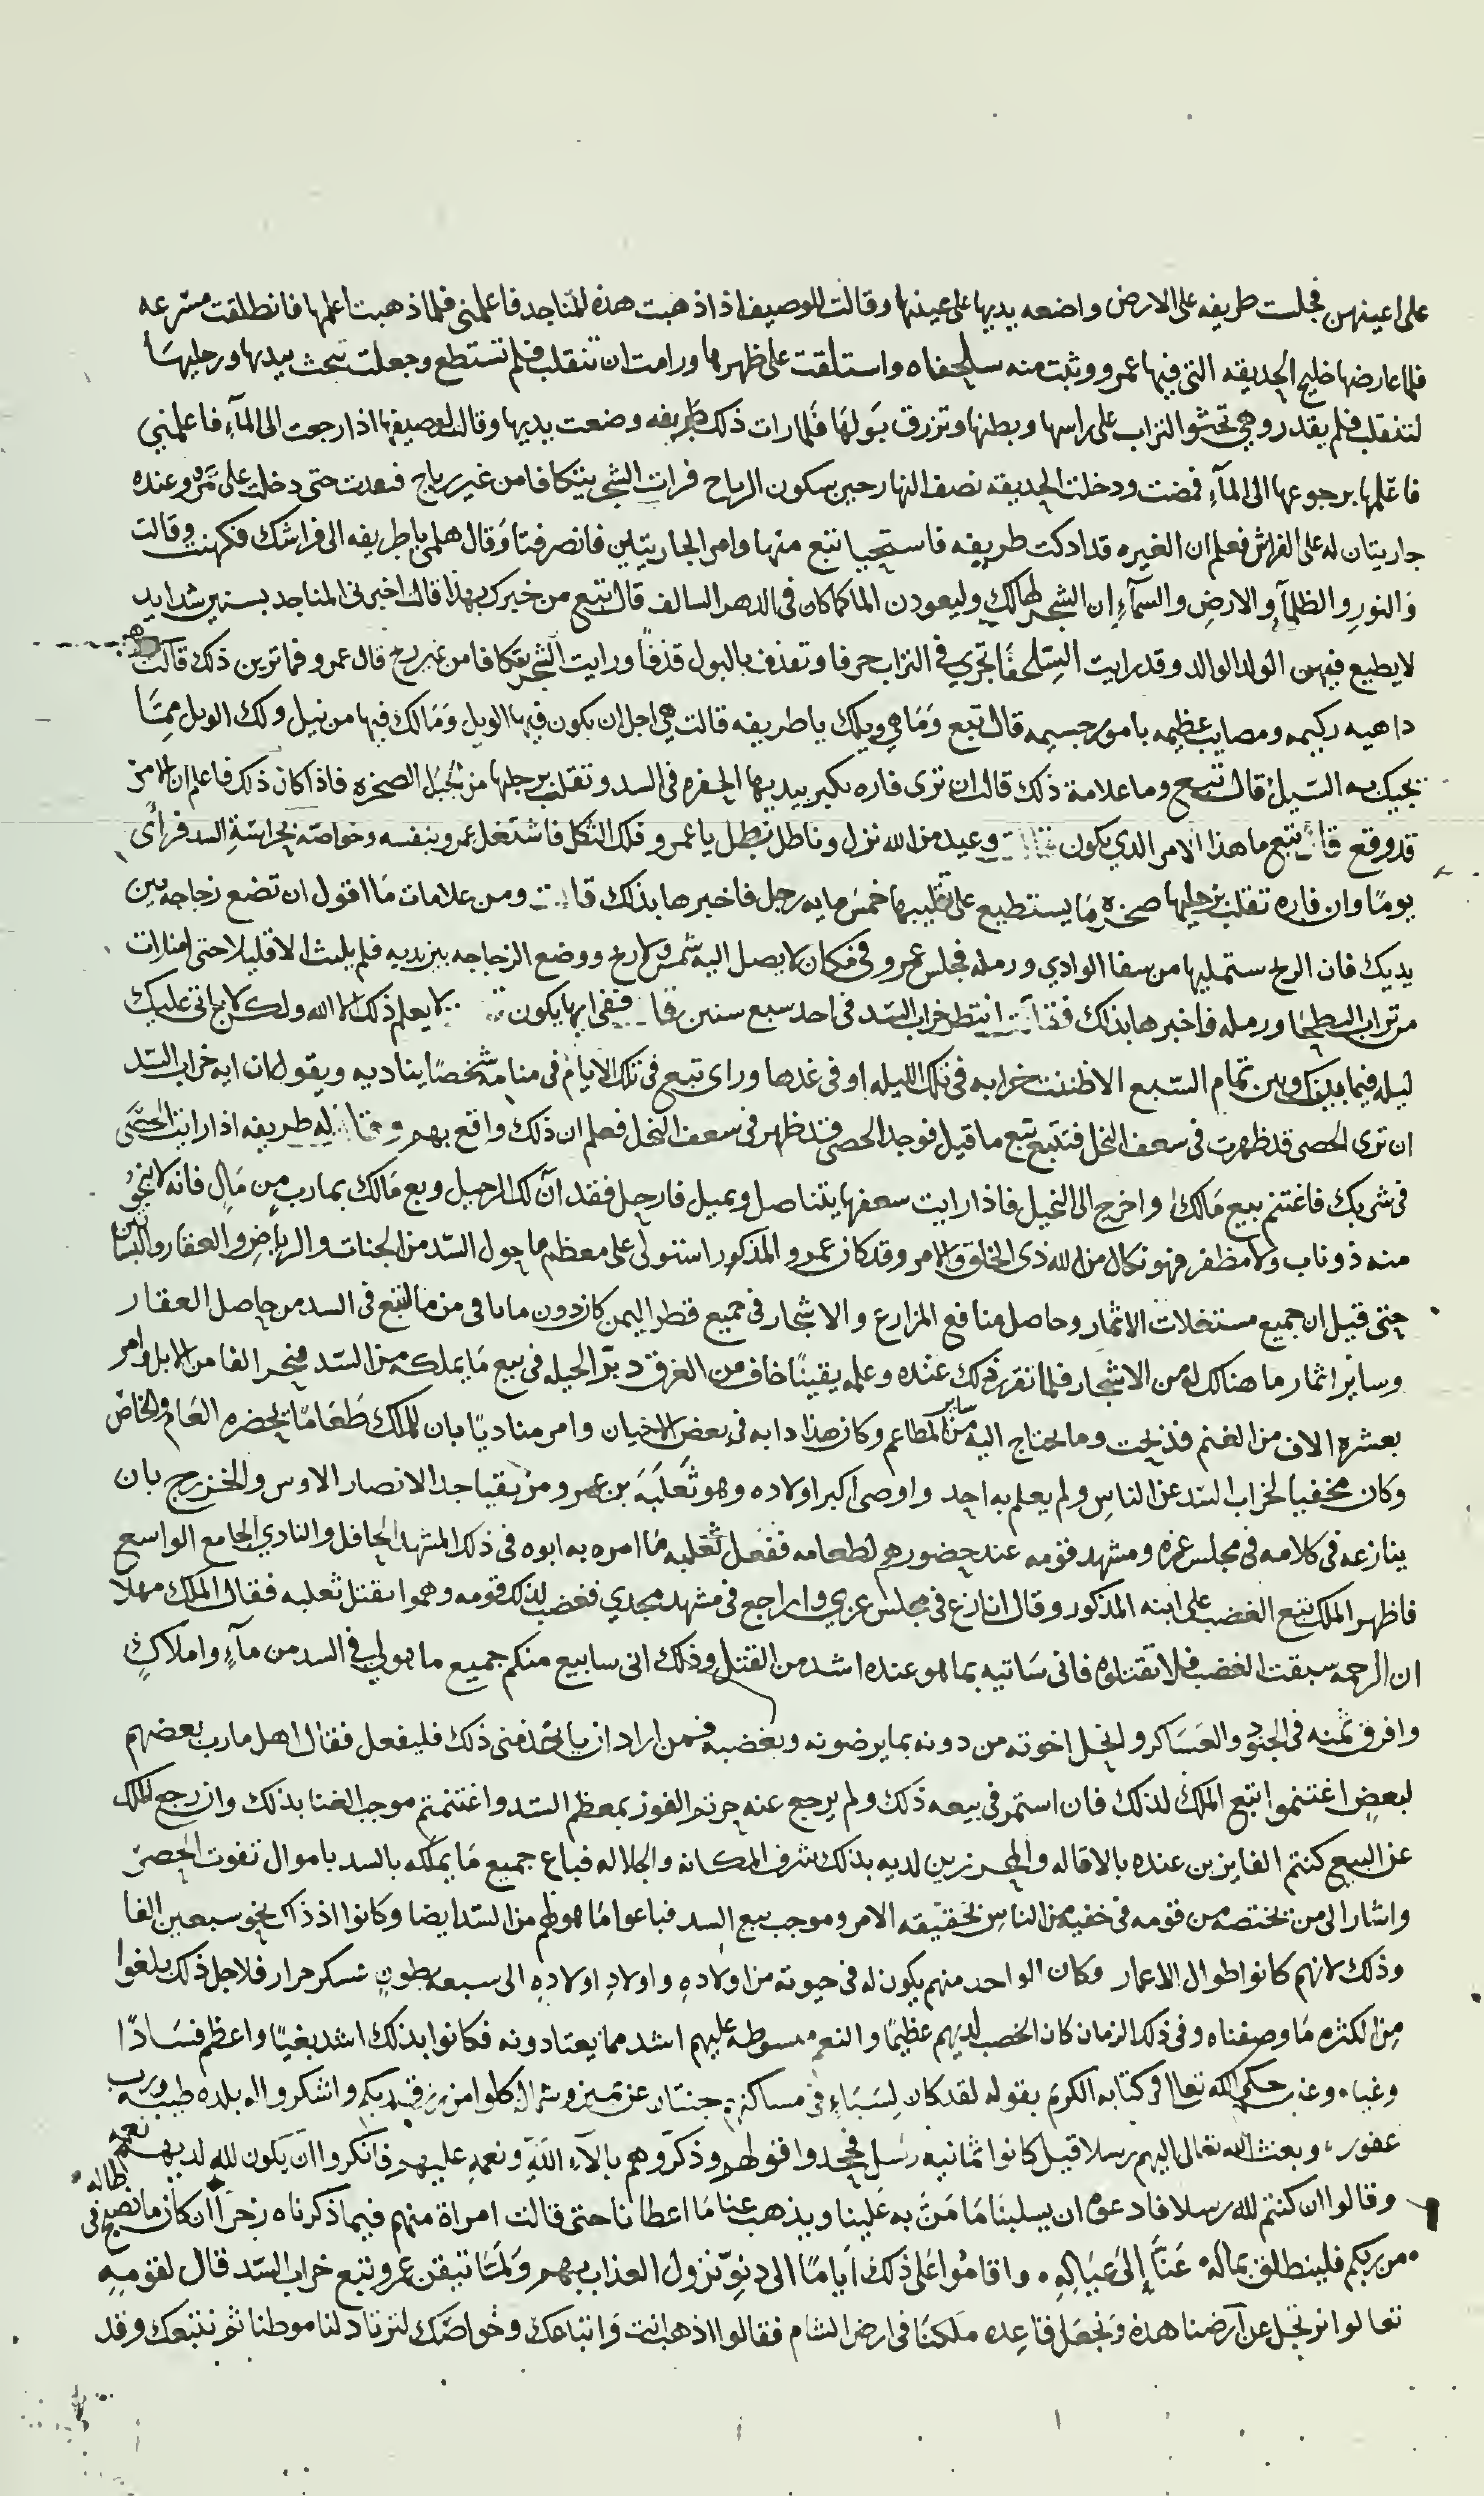 على اعينهن فجلست طريفه على الارض واضعه يديها على عينها وقالت للوصيف اذا ذهبت هذه المناجد فاعلمني فلما ذهبت اعلمها فانطلقت مسرعه
فلما عارضها خليج الحديقه التي فيها عمرو وثبت منه سلحفاه واستلقت على ظهرها ورامت ان تنقلب فلم تستطع وجعلت تبحث بيديها ورجليها
لتنقلب فلم يقدر وهي تحثو التراب على راسها وبطنها وتزرق بولها فلما رات ذلك طريفه وضعت يديها وقالت لوصيفها اذا رجعت الى الماء فاعلمني
فاعلمها برجوعها الى الماء فمضت ودخلت الحديقه نصف النهار حين سكون الرياح فرات الشجر يتكافا من غير رياح فبعدت حتى دخلت على عمرو وعنده
جاريتان له على الفراش فعلم ان الغيره قد ادركت طريفه فاستحيا تبع منها وامر الجاريتين فانصرفتا وقال هلمي يا طريفه الى فراشك فكهنت وقالت
والنور والظلماء والارض والسماء ان الشجر لهالك وليعودن الما كما كان في الدهر السالف قال تبع من خبرك بهذا قالت اخبرني المناجد بسنين شدايد
لا يطيع فيهن الولد الوالد وقد رايت السلحفا تجري في التراب جرفا وتقذف بالبول قذفا ورايت الشجر يتكافا من غير ريح قال عمرو فما ترين ذلك قالت هي
داهيه ركيمه ومصايب عظيمه بامور جسيمه قال تبع وما هي ويلك يا طريفه قالت هي اجل ان يكون فيها الويل وما لك فيها من نيل ولك الويل مما
يجيك به السيل قال تبع وما علامة ذلك قالت ان ترى فاره تكثر بيديها الحفره في السد وتقلب برجلها من الجبل الصخره فاذا كان ذلك فاعلم ان الامر
قد وقع قال تبع ما هذا الامر الذي يكون قالت وعيد من الله نزل وباطل بطل يا عمرو فلك الثكل فاشتغل عمرو بنفسه وخواصه بحراسة السد فراى
يوما وان فاره تقلب برجليها صخره ما يستطيع على تقليبها خمس مايه رجل فاخبرها بذلك قالت ومن علامات ما اقول ان تضع زجاجه بين
يديك فان الريح ستمليها من سفا الوادي ورمله فجلس عمرو في مكان لا يصل اليه شمس ولا ريح ووضع الزجاجه بين يديه فلم يلبث الا قليلا حتى امتلات
من تراب البطحا ورمله فاخبرها بذلك فقالت انتظر خراب السد في احد سبع سنين قال ففي ايها يكون قالت لا يعلم ذلك الا الله ولكن لا ياتي عليك
ليله فيما بينك وبين تمام السبع الا ظننت خرابه في تلك الليله او في غدها وراى تبع في تلك الايام في منامه شخصا يناديه ويقول ان ايه خراب السد
ان ترى الحصى قد ظهرت في سعف النخل فتتبع تبع ما قيل فوجد الحصى قد ظهر في سعف النخل فعلم ان ذلك واقع بهم وقالت له طريفه اذا رايت الحصى
في شربك فاغتنم بيع مالك واخرج الى النخيل فاذا رايت سعفها يتناصل ويميل فارحل فقد آن لك الرحيل وبع مالك بمارب من مال فانه لا ينجو
منه ذو ناب ولا مظفر فهو نكال من الله ذي الخلق والامر وقد كان عمرو المذكور استولى على معظم ما حول السد من الجنات والرياض والعقار والبساتين
حتى قيل ان جميع مستغلات الاثمار وحاصل منافع المزارع والاشجار في جميع قطر اليمن كان دون ما ياتي من مال تبع في السد من حاصل العقار
وساير اثمار ما هنالك له من الاشجار فلما تقرر ذلك عنده وعلمه يقينا خاف من الغرق دبر الحيله في بيع ما يملكه من السد فنحر الفا من الابل وامر
بعشره الاف من الغنم فذبحت وما يحتاج اليه من ساير المطاعم وكان هذا دابه في بعض الاحيان وامر مناديا بان للملك طعاما يحضره العام والخاص
وكان مخفيا لخراب السد عن الناس ولم يعلم به احد واوصى اكبر اولاده وهو ثعلبة بن عمرو مزيقيا جد الانصار الاوس والخزرج بان
ينازعه في كلامه في مجلس عزه ومشهد قومه عند حضورهم لطعامه ففعل ثعلبه ما امره به ابوه في ذلك المشهد الحافل والنادي الجامع الواسع
فاظهر الملك تبع الغضب على ابنه المذكور وقال انازع في مجلس عزي واراجع في مشهد مجدي فغضب لذلك قومه وهموا بقتل ثعلبه فقال الملك مهلا
ان الرحمه سبقت الغضب فلا تقتلوه فاني ساتيه بما هو عنده اشد من القتل وذلك اني سابيع منكم جميع ما هو لي في السد من ماء واملاك
وافرق ثمنه في الجنود والعساكر وانحل اخوته من دونه بما يرضونه ويغضبه فمن اراد ان ياخذ مني ذلك فليفعل فقال اهل مارب بعضهم
لبعض اغتنموا بيع الملك لذلك فان استمر في بيعه ذلك ولم يرجع عنه حزتم الفوز بمعظم السد واغتنمتم موجب الغنا بذلك وان رجع الملك
عن البيع كنتم الفايزين عنده بالاقاله والمحرزين لديه بذلك شرف المكانه والجلاله فباع جميع ما يملكه بالسد باموال تفوت الحصر
واشار الى من يختصه من قومه في خفيه من الناس بحقيقه الامر وموجب بيع السد فباعوا ما هو لهم من السد ايضا وكانوا اذ ذاك نحو سبعين الفا
وذلك لانهم كانوا طوال الاعمار وكان الواحد منهم يكون له في حيوته من اولاده واولاد اولاده الى سبعه بطون فلاجل ذلك بلغوا
من الكثره ما وصفناه وفي ذلك الزمان كان الخصب لديهم عظيما والنعم مبسوطه عليهم اشد مما يعتادونه فكانوا بذلك اشد بغيا واعظم فسادا
وغيا وعنه حكى الله تعالى في كتابه الكريم بقوله لقد كان لسباء في مساكنهم جنتان عن يمين وشمال كلوا من رزق ربكم واشكروا له بلده طيبه ورب
غفور، وبعث الله تعالى اليهم رسلا قيل كانوا ثمانيه رسل فجحدوا قولهم وذكروهم بالآء الله ونعمه عليهم فانكروا ان يكون لله لديهم نعمه
وقالوا ان كنتم لله رسلا فادعوه ان يسلبنا ما من به علينا ويذهب عنا ما اعطانا حتى قالت امراة منهم فيما ذكرناه زجرا ان كان ما نصبح في ظلاله
من ربكم فلينطلق بماله عنا إلى عياله واقاموا على ذلك اياما الى دنو نزول العذاب بهم ولما تيقن عمرو تبع خراب السد قال لقومه
تعالوا نرتحل عن ارضنا هذه ونجعل قاعده ملكنا في ارض الشام فقالوا اذهب انت واتباعك وخواصك لترتاد لنا موطنا ثم نتبعك وقد